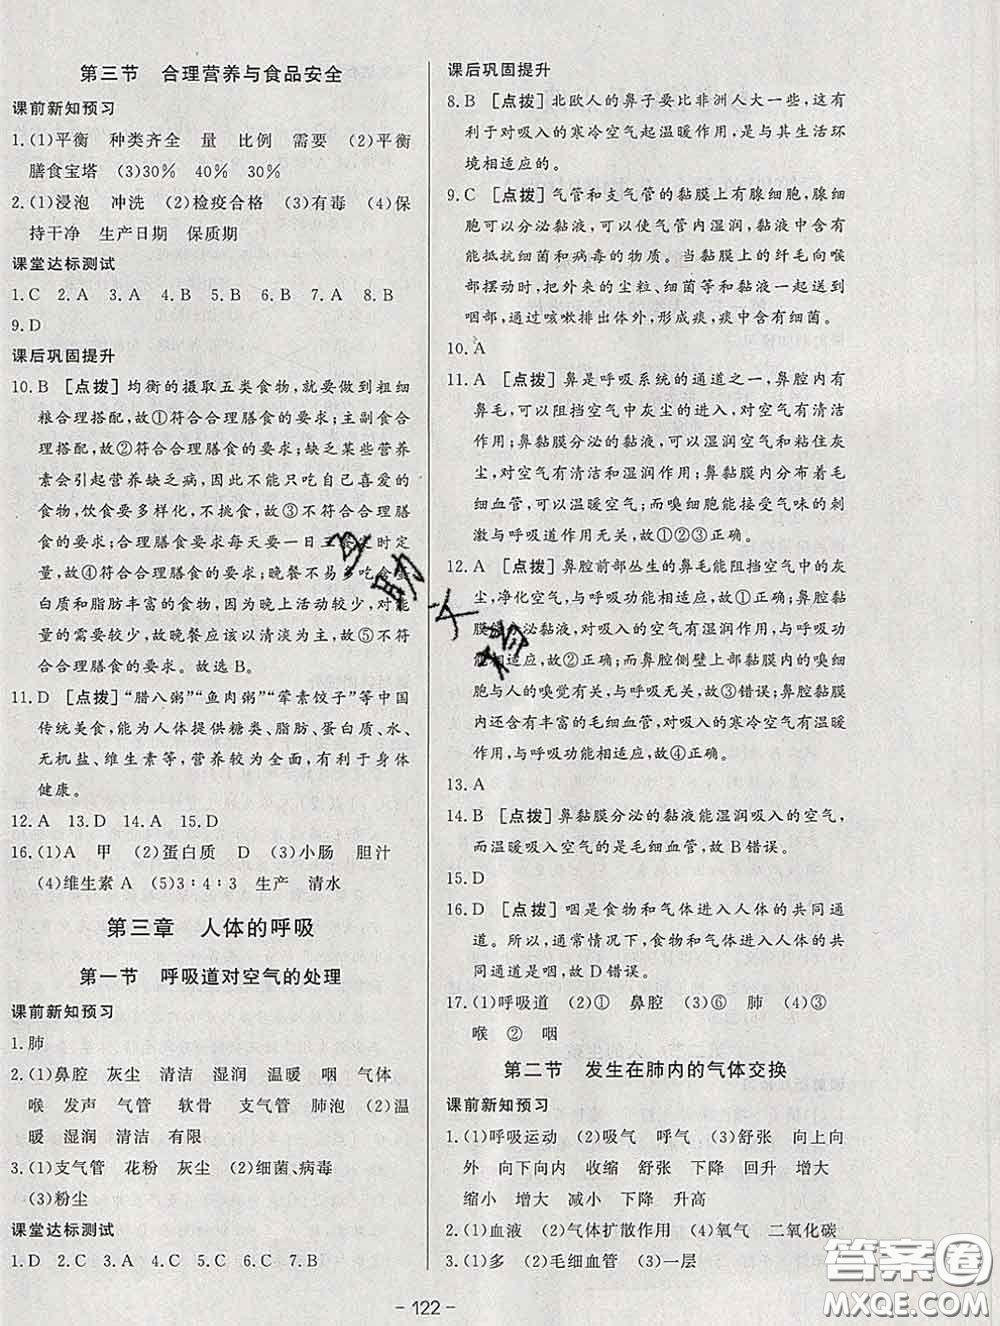 第三节　合理营养与食品安全
课前新知预习
1.(1)平衡　种类齐全　量　比例　需要　(2)平衡
膳食宝塔　(3)30%　40%　30%
2.(1)浸泡　冲洗　(2)检疫合格　(3)有毒　(4)保
持干净　生产日期　保质期
课堂达标测试
1.C　2.A　3.A　4.B　5.B　6.B　7.A　8.B
9.D
课后巩固提升
10.B　[点拨]均衡的摄取五类食物,就要做到粗细
粮合理搭配,故①符合合理膳食的要求;主副食合
理搭配,故②符合合理膳食的要求;缺乏某些营养
素会引起营养缺乏病,因此不能只吃自己喜爱的
食物,饮食要多样化,不挑食,故③不符合合理膳
食的要求;合理膳食要求每天要一日三餐定时定
量,故④符合合理膳食的要求;晚餐不易多吃含蛋
白质和脂肪丰富的食物,因为晚上活动较少,对能
量的需要较少,故晚餐应该以清淡为主,故⑤不符
合合理膳食的要求。故选 B。
11.D　[点拨]“腊八粥”“鱼肉粥”“荤素饺子”等中国
传统美食,能为人体提供糖类、脂肪、蛋白质、水、
无机盐、维生素等,营养较为全面,有利于身体
健康。
12.A　13.D　14.A　15.D
16.(1)A　甲　(2)蛋白质　D　(3)小肠　胆汁
(4)维生素 A　(5)3∶4∶3　生产　清水
第三章　人体的呼吸
第一节　呼吸道对空气的处理
课前新知预习
1.肺
2.(1)鼻腔　灰尘　清洁　湿润　温暖　咽　气体
喉　发声　气管　软骨　支气管　肺泡　(2)温
暖　湿润　清洁　有限
3.(1)支气管　花粉　灰尘　(2)细菌、病毒
(3)粉尘
课堂达标测试
1.D　2.C　3.A　4.C　5.C　6.C　7.B
课后巩固提升
8.B　[点拨]北欧人的鼻子要比非洲人大一些,这有
利于对吸入的寒冷空气起温暖作用,是与其生活环
境相适应的。
9.C　[点拨]气管和支气管的黏膜上有腺细胞,腺细
胞可以分泌黏液,可以使气管内湿润,黏液中含有
能抵抗细菌和病毒的物质。当黏膜上的纤毛向喉
部摆动时,把外来的尘粒、细菌等和黏液一起送到
咽部,通过咳嗽排出体外,形成痰,痰中含有细菌。
10.A
11.A　[点拨]鼻是呼吸系统的通道之一,鼻腔内有
鼻毛,可以阻挡空气中灰尘的进入,对空气有清洁
作用;鼻黏膜分泌的黏液,可以湿润空气和粘住灰
尘,对空气有清洁和湿润作用;鼻黏膜内分布着毛
细血管,可以温暖空气;而嗅细胞能接受气味的刺
激与呼吸道作用无关,故①②③正确。
12.A　[点拨]鼻腔前部丛生的鼻毛能阻挡空气中的灰
尘,净化空气,与呼吸功能相适应,故①正确;鼻腔黏
膜能分泌黏液,对吸入的空气有湿润作用,与呼吸功
能相适应,故②正确;鼻腔侧壁上部黏膜内的嗅细
胞与人的嗅觉有关,与呼吸无关,故③错误;鼻腔黏膜
内还含有丰富的毛细血管,对吸入的寒冷空气有温暖
作用,与呼吸功能相适应,故④正确。
13.A
14.B　[点拨]鼻黏膜分泌的黏液能湿润吸入的空气,
而温暖吸入空气的是毛细血管,故 B 错误。
15.D
16.D　[点拨]咽是食物和气体进入人体的共同通
道。所以,通常情况下,食物和气体进入人体的共
同通道是咽,故 D 错误。
17.(1)呼吸道　(2)①　鼻腔　(3)⑥　肺　(4)③
喉　②　咽
第二节　发生在肺内的气体交换
课前新知预习
1.(1)呼吸运动　(2)吸气　呼气　(3)舒张　向上向
外　向下向内　收缩　舒张　下降　回升　增大
缩小　增大　减小　下降　升高
2.(1)血液　(2)气体扩散作用　(4)氧气　二氧化碳
3.(1)多　(2)毛细血管　(3)一层
- 122 -
答案圈
MXQE.COM